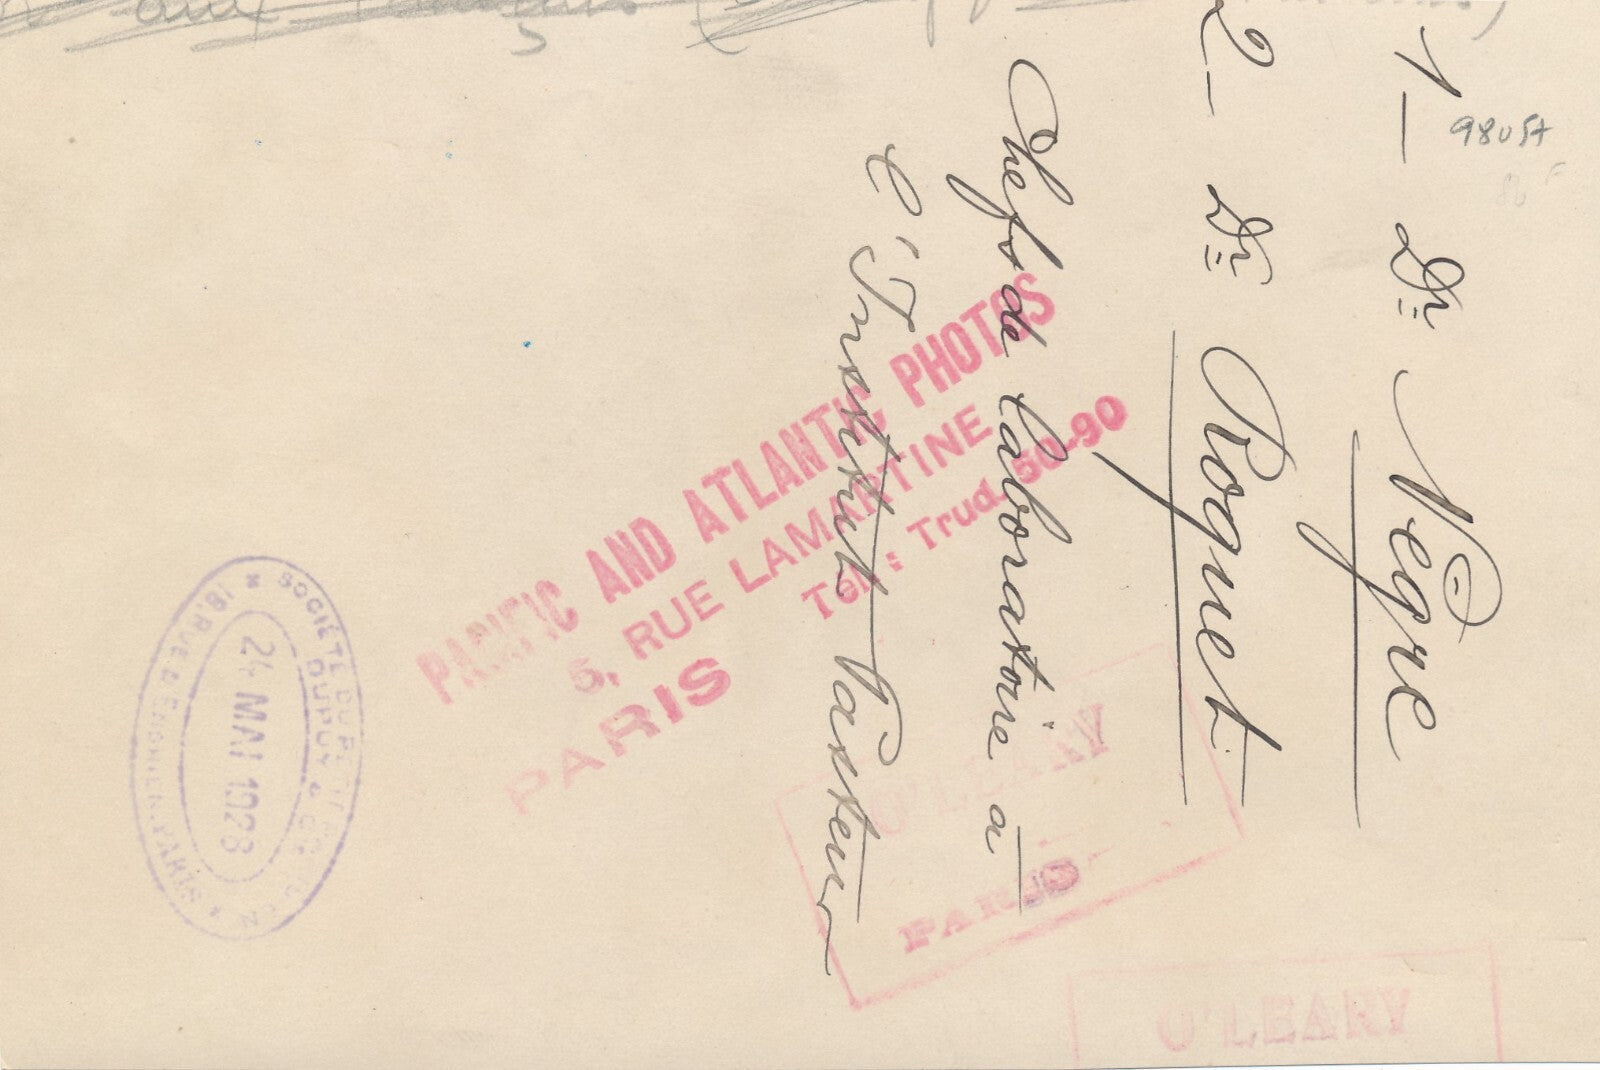 1 — Dr Nègre
2 — Dr Boquet
Chefs de laboratoire à
l'Institut Pasteur
98057
PACIFIC AND ATLANTIC PHOTOS
5, RUE LAMARTINE
Tél: Trud. 50-90
PARIS
O'LEARY
PARIS
O'LEARY
SOCIÉTÉ DU PETIT PARISIEN
DUPUY & Cie
18, RUE D'ENGHIEN, PARIS
24 MAI 1928